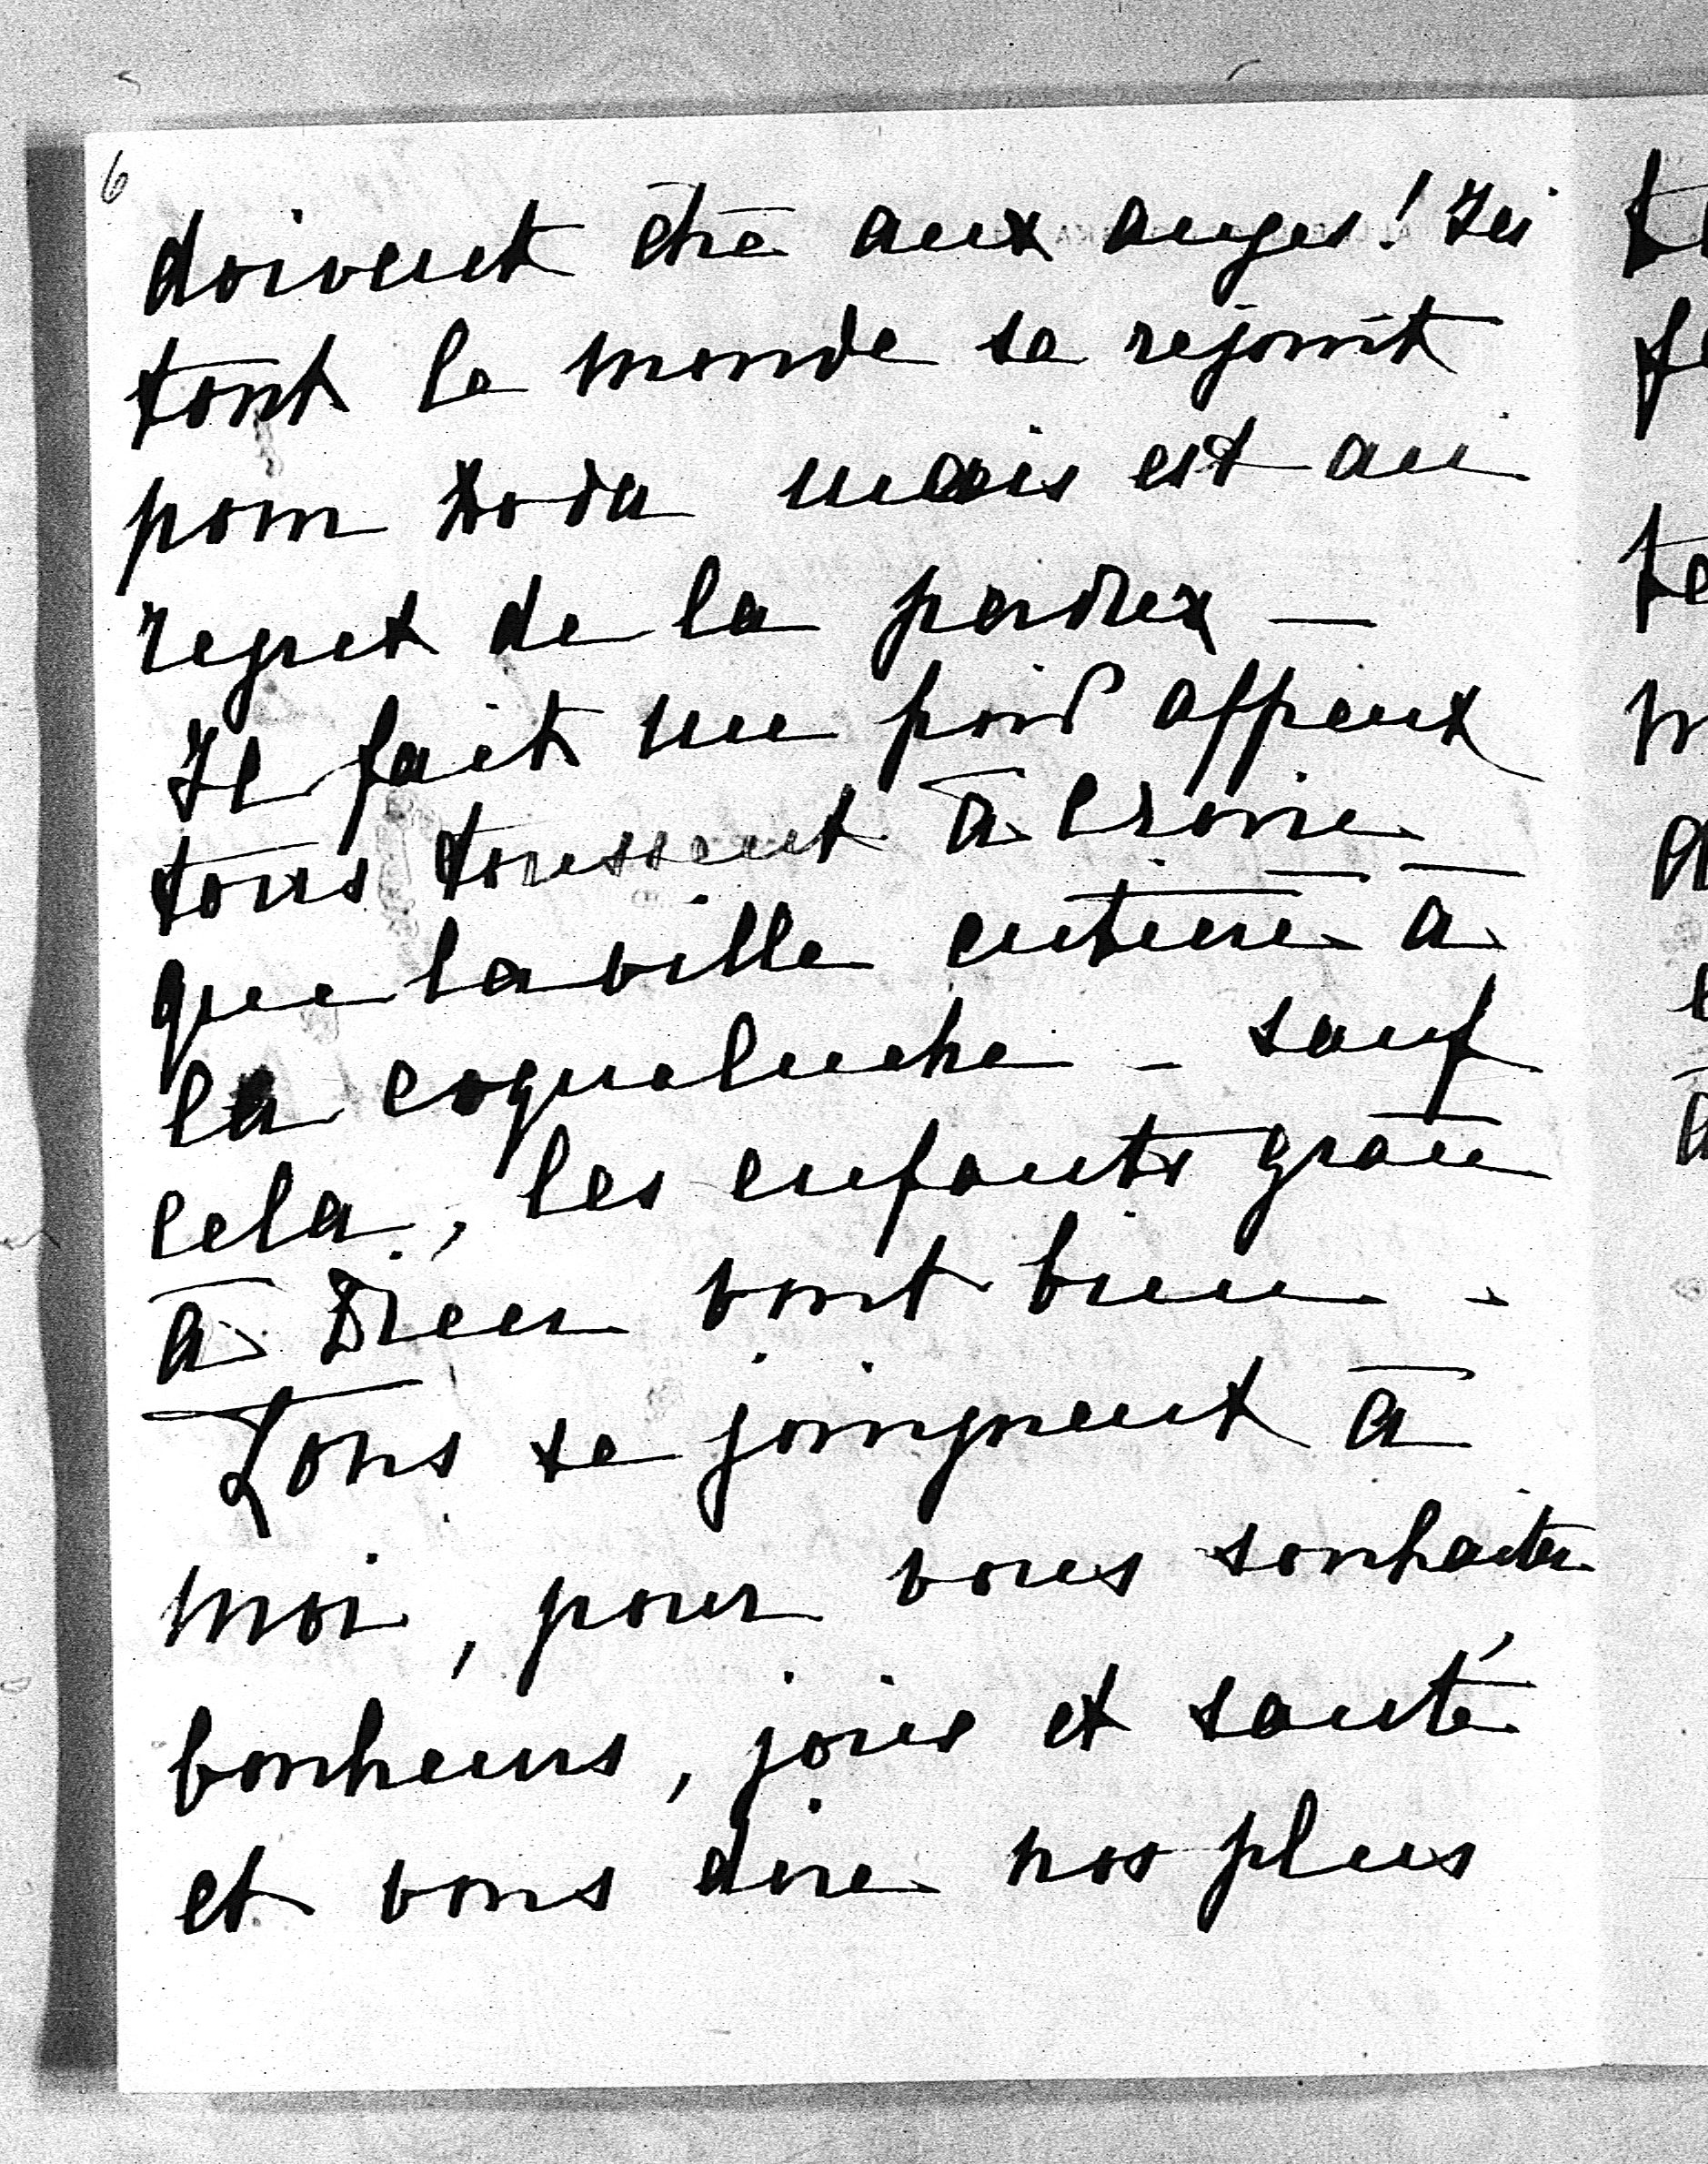 6
doivent être aux anges! Ici
tout le monde se rejouit
pour Doda mais est au
regret de la perdre —
Il fait un froid affreux
tous toussent à croire
que la ville entière a
la coqueluche - sauf
cela, les enfants grâce
à Dieu vont bien -
Tous se joignent à
moi, pour vous souhaiter
bonheurs, joies et santé
et vous dire nos plus